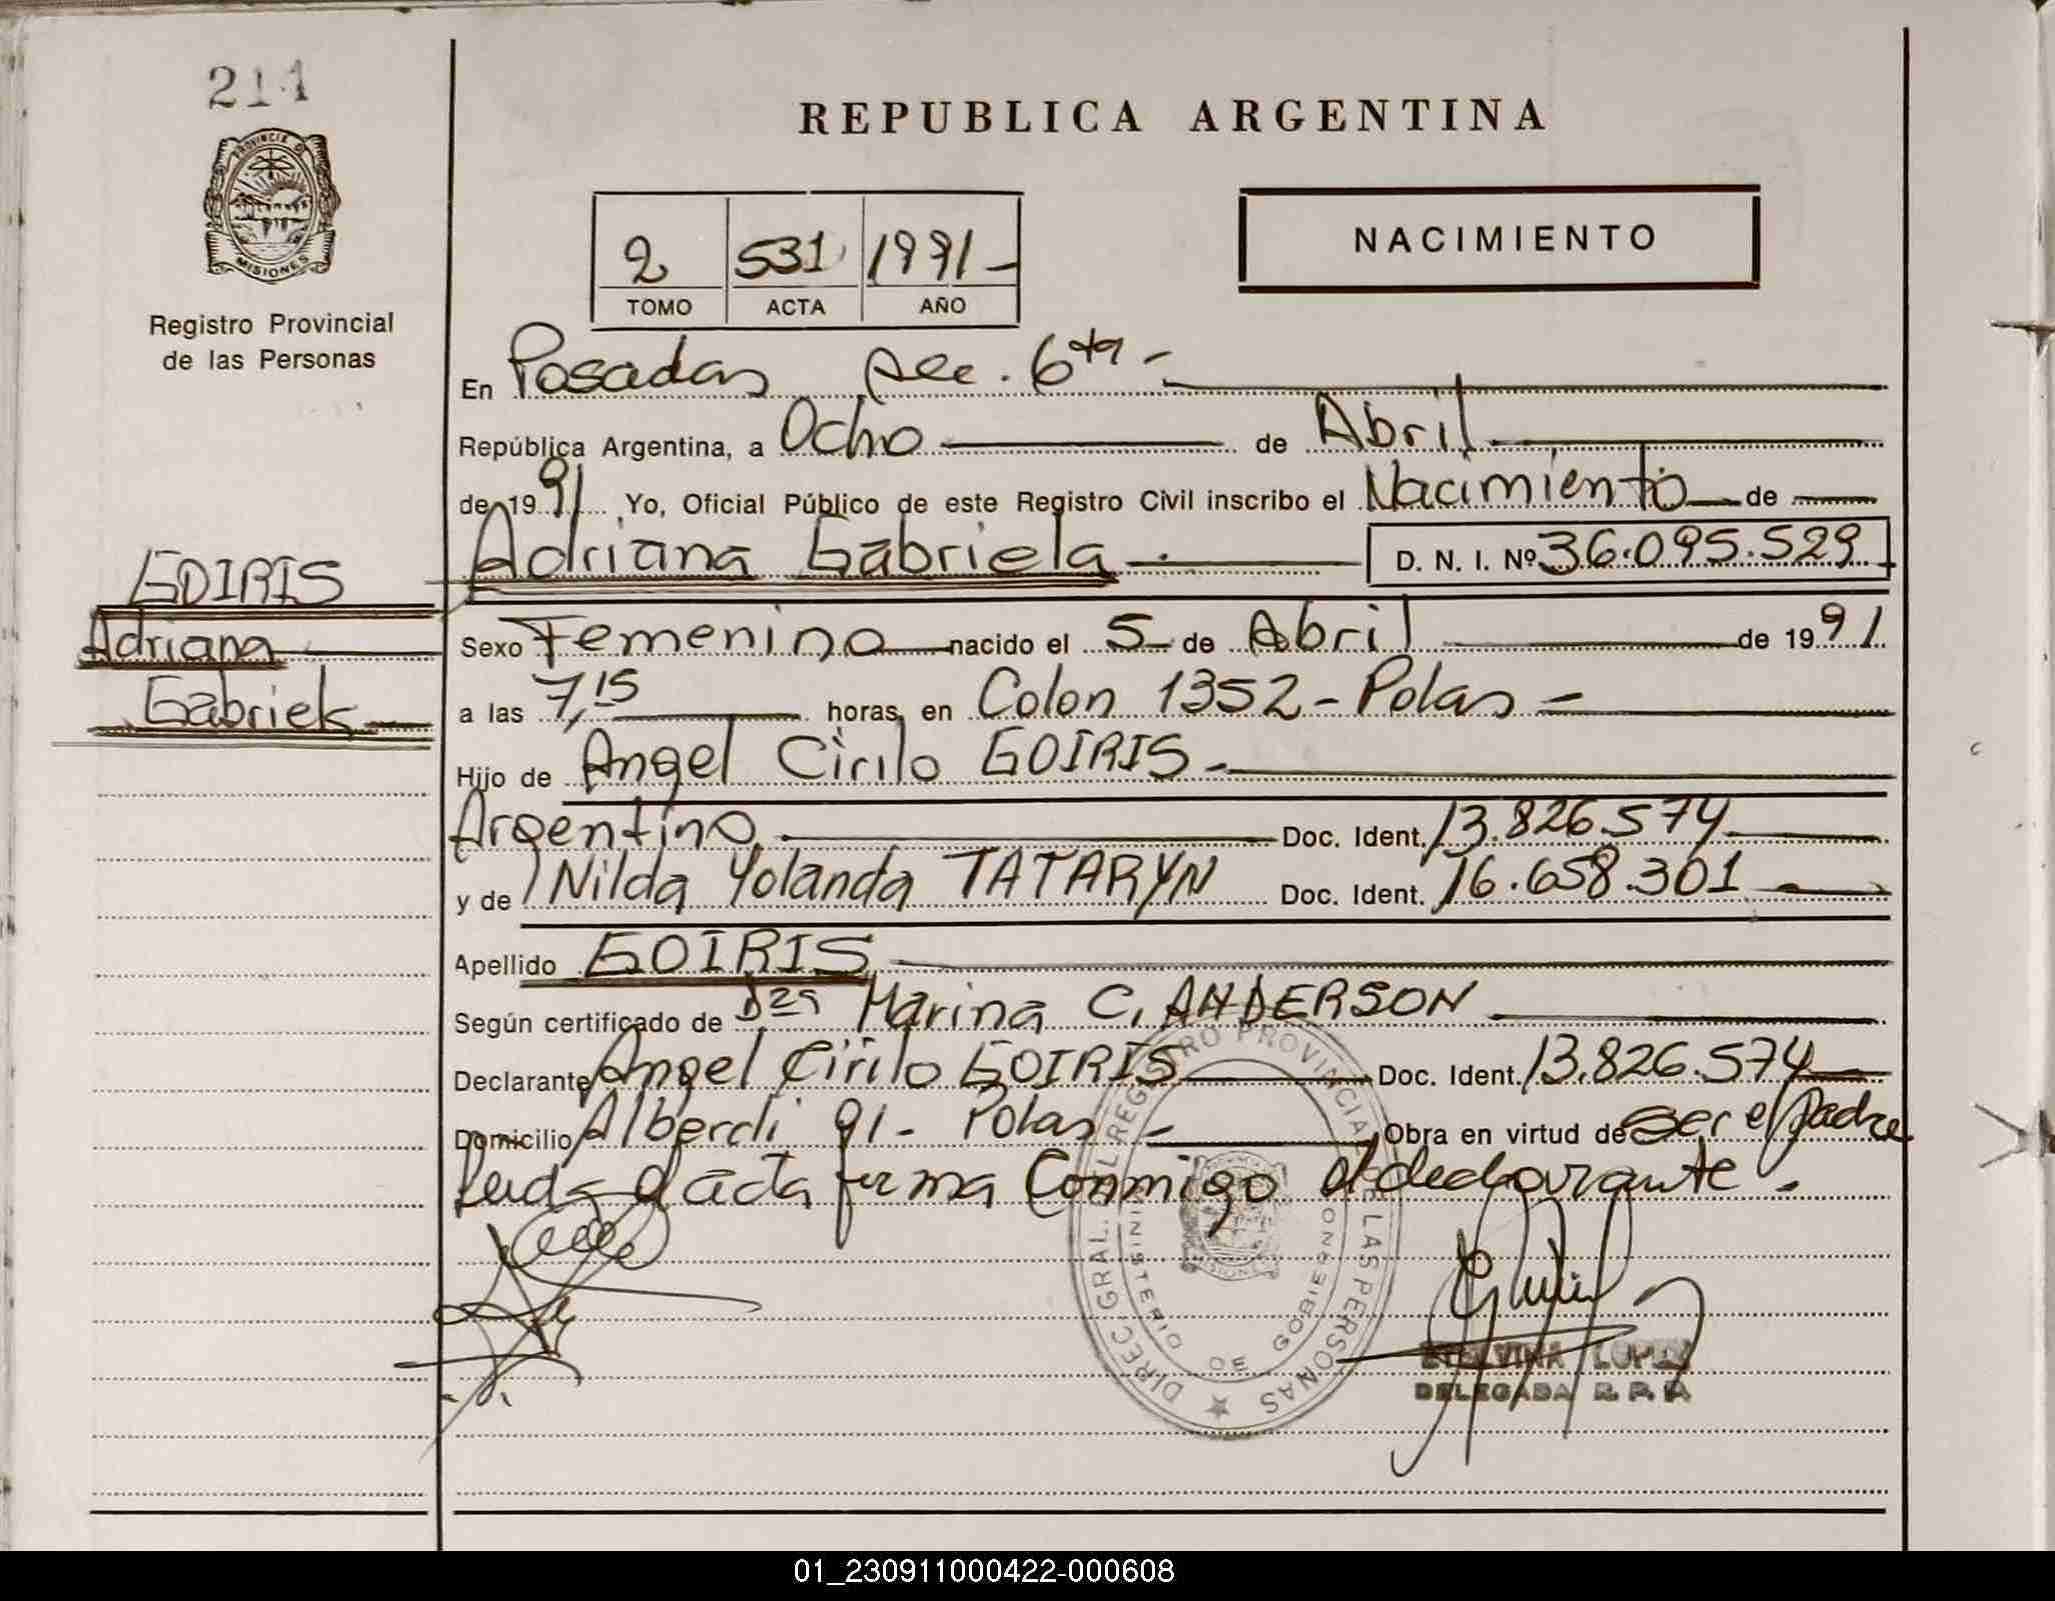 214
PROVINCIA DE
MISIONES
Registro Provincial
de las Personas
REPUBLICA ARGENTINA
2 531 1991
TOMO ACTA AÑO
NACIMIENTO
En Posadas sec. 6ta -
República Argentina, a Ocho de Abril
de 1991 Yo, Oficial Público de este Registro Civil inscribo el Nacimiento de
Adriana Gabriela D. N. I. Nº 36.095.529
GOIRIS
Adriana
Gabriela
Sexo Femenino nacido el 5 de Abril de 1991
a las 7,15 horas, en Colon 1352 - Pdas -
Hijo de Angel Cirilo GOIRIS -
Argentino Doc. Ident. 13.826.574
y de Nilda Yolanda TATARYN Doc. Ident. 16.658.301
Apellido GOIRIS
Según certificado de Dra Marina C. ANDERSON
Declarante Angel Cirilo GOIRIS Doc. Ident. 13.826.574
Domicilio Alberdi 91 - Pdas - Obra en virtud de ser el padre
Leida el acta firma Conmigo el declarante.
DIREC. GRAL. DEL REGISTRO PROVINCIAL DE LAS PERSONAS
MINISTERIO DE GOBIERNO
MISIONES
ETELVINA LOPEZ
DELEGADA R. P. P.
01_230911000422-000608